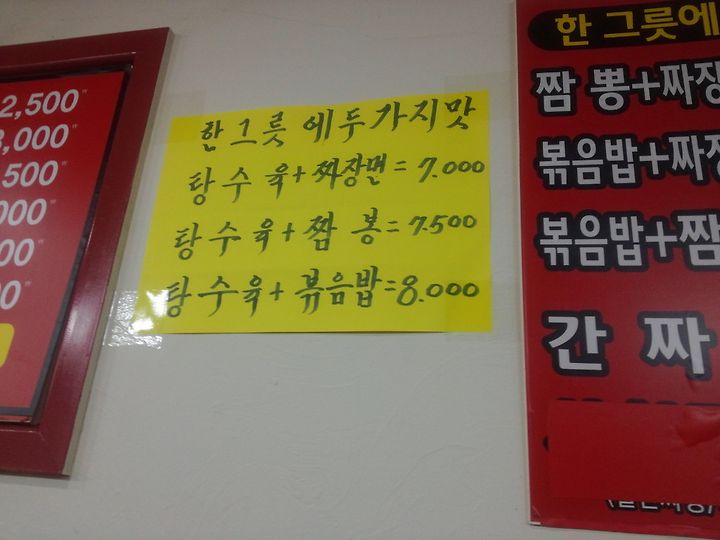 2,500"
,000"
500"
000"
00"
0"
한 그릇 에 두 가지 맛
탕 수 육 + 짜장면 = 7.000
탕 수 육 + 짬 봉 = 7.500
탕 수 육 + 볶음밥 = 8.000
한 그릇에
짬 뽕+짜장
볶음밥+짜장
볶음밥+짬
간 짜